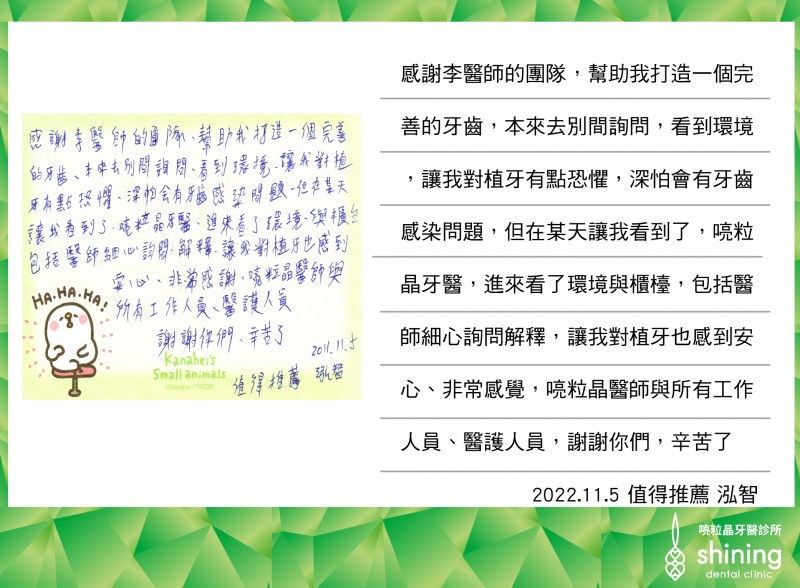 感謝李醫師的團隊、幫助我打造一個完善
的牙齒、本來去別間詢問、看到環境、讓我對植
牙有點恐懼、深怕會有牙齒感染問題、但在某天
讓我看到了、喨粒晶牙醫、進來看了環境、與櫃台
包括醫師細心詢問、解釋、讓我對植牙也感到
安心、非常感謝、喨粒晶醫師與
所有工作人員、醫護人員
謝謝你們、辛苦了
2011.11.5
值得推薦 泓智
HA.HA.HA!
Kanahei's
Small animals
感謝李醫師的團隊，幫助我打造一個完
善的牙齒，本來去別間詢問，看到環境
，讓我對植牙有點恐懼，深怕會有牙齒
感染問題，但在某天讓我看到了，喨粒
晶牙醫，進來看了環境與櫃檯，包括醫
師細心詢問解釋，讓我對植牙也感到安
心、非常感覺，喨粒晶醫師與所有工作
人員、醫護人員，謝謝你們，辛苦了
2022.11.5 值得推薦 泓智
喨粒晶牙醫診所
shining
dental clinic